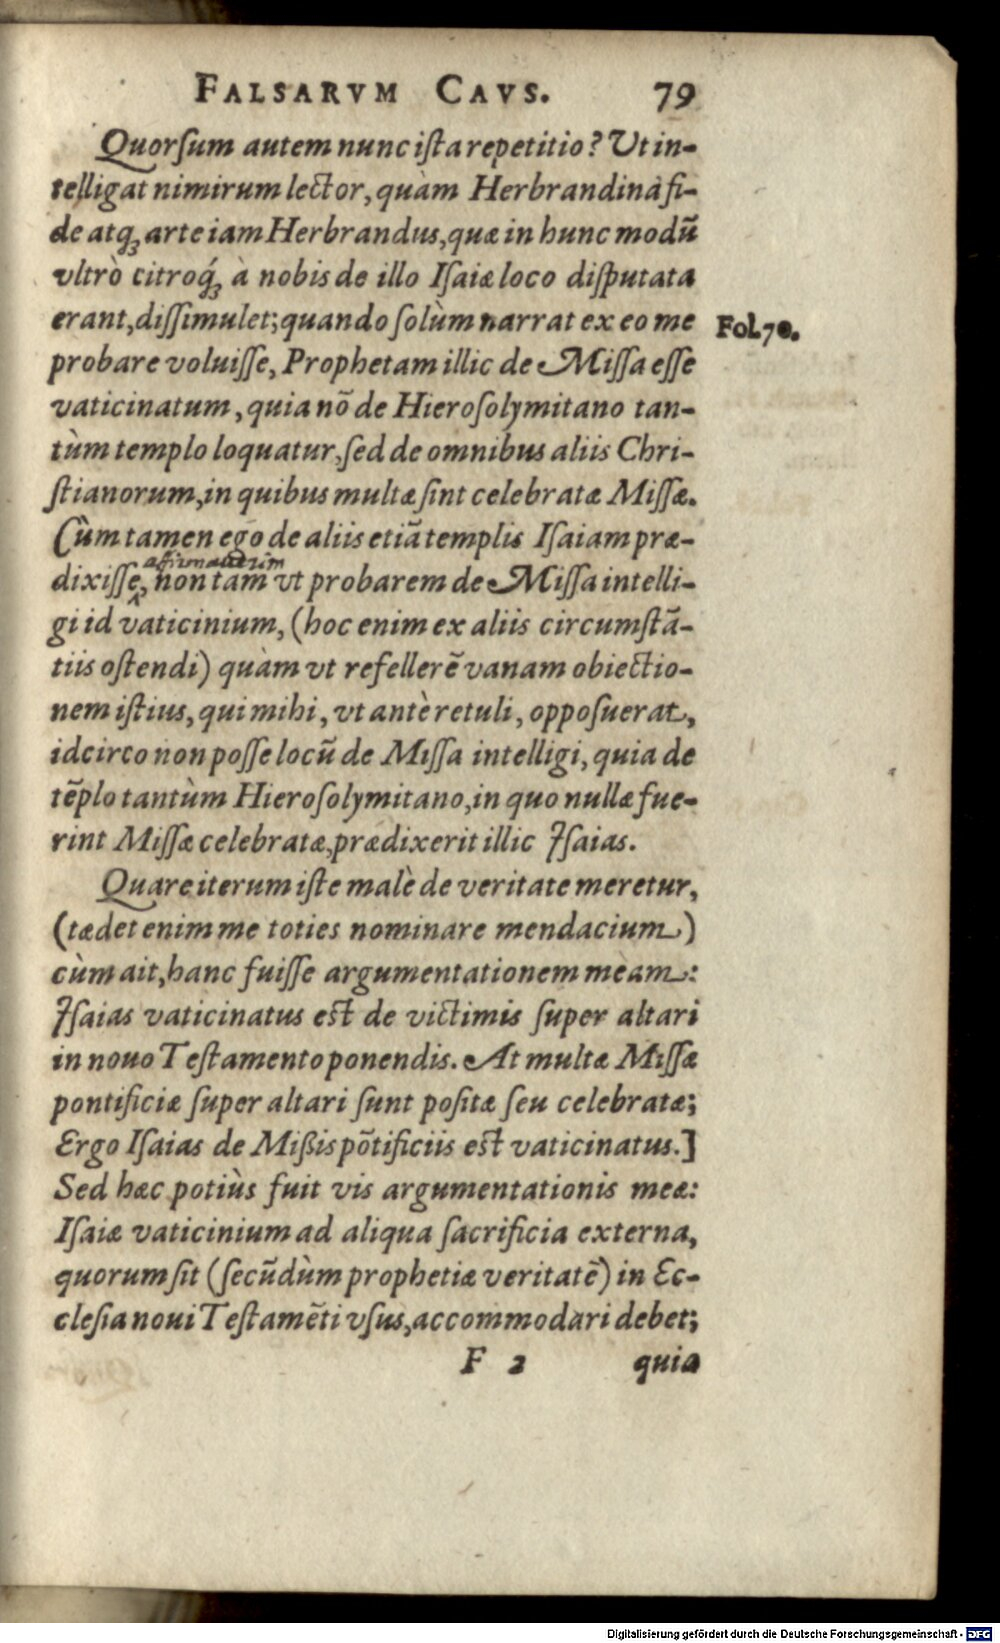 FALSARVM CAVS. 79
Quorſum autem nunc iſta repetitio? Ut in-
telligat nimirum lector, quàm Herbrandinâ fi-
de atq́ꝫ arte iam Herbrandus, quæ in hunc modū
vltrò citroq́ꝫ à nobis de illo Iſaiæ loco diſputata
erant, diſſimulet; quando ſolùm narrat ex eo me
Fol. 70.
probare voluiſſe, Prophetam illic de Miſſa eſſe
vaticinatum, quia nō de Hieroſolymitano tan-
tùm templo loquatur, ſed de omnibus aliis Chri-
ſtianorum, in quibus multæ ſint celebratæ Miſſæ.
Cùm tamen ego de aliis etiā templis Iſaiam præ-
affirmauerim
dixiſſe, non tam vt probarem de Miſſa intelli-
gi id vaticinium, (hoc enim ex aliis circumſtā-
tiis oſtendi) quàm vt refellerē vanam obiectio-
nem iſtius, qui mihi, vt antè retuli, oppoſuerat,
idcirco non poſſe locū de Miſſa intelligi, quia de
tēplo tantùm Hieroſolymitano, in quo nullæ fue-
rint Miſſæ celebratæ, prædixerit illic Iſaias.
Quare iterum iſte malè de veritate meretur,
(tædet enim me toties nominare mendacium)
cùm ait, hanc fuiſſe argumentationem meam:
Iſaias vaticinatus eſt de victimis ſuper altari
in nouo Teſtamento ponendis. At multæ Miſſæ
pontificiæ ſuper altari ſunt poſitæ ſeu celebratæ;
Ergo Iſaias de Mißis pōtificiis eſt vaticinatus.]
Sed hæc potiùs fuit vis argumentationis meæ:
Iſaiæ vaticinium ad aliqua ſacrificia externa,
quorum ſit (ſecūdùm prophetiæ veritatē) in Ec-
cleſia noui Teſtamēti vſus, accommodari debet;
F 2 quia
Digitalisierung gefördert durch die Deutsche Forschungsgemeinschaft - DFG